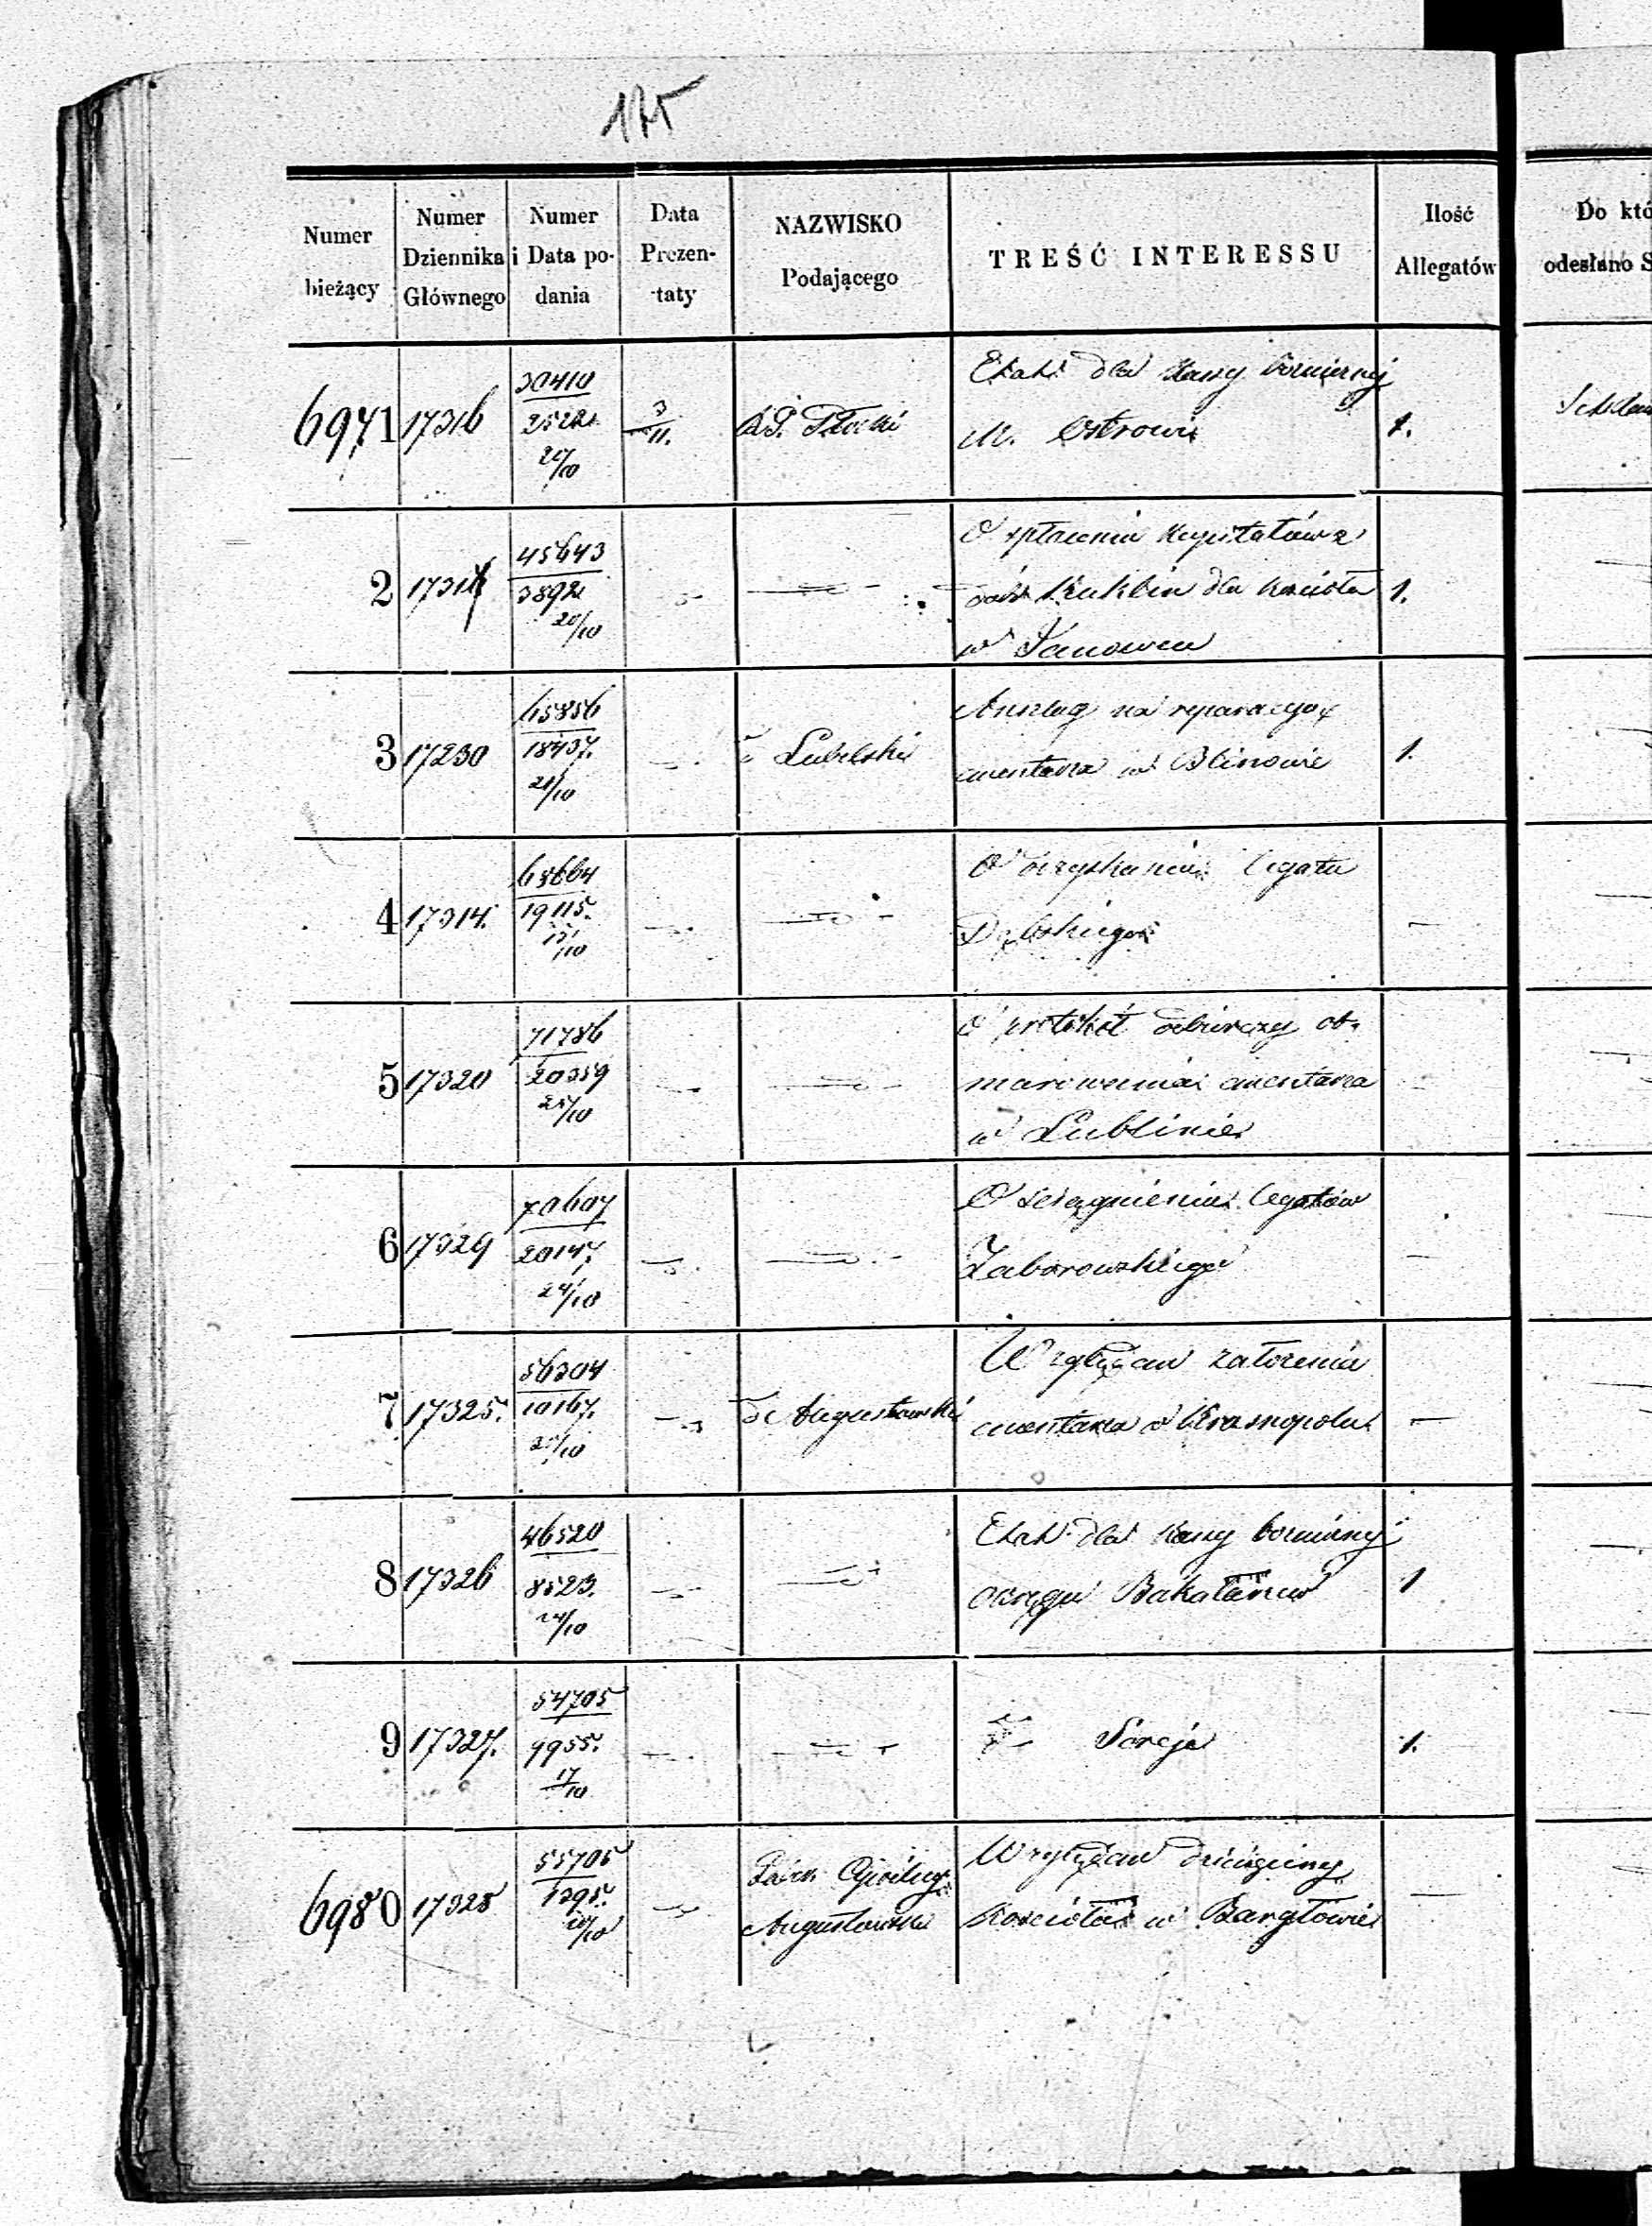 175
Numer bieżący
Numer Dziennika Głównego
Numer i Data podania
Data Prezentaty
NAZWISKO Podającego
TREŚĆ INTERESSU
Ilość Allegatów
Do któ
odesłano S
6971 17316 30410 3/11. R.G. Płocki Etat dla kassy bożniczej
M. Ostrowi 1.
2 45643
3892 20/10 O spłacenie kapitałów z
dóbr Kuklin dla kościoła 1.
w Janowcu
3 17230 65856
18437. 21/10 Lubelski Anszlag na reparacyą
cmentarza w Blinowie 1.
4 17314. 19115. O legatu
5 17320 71786
20359 25/10 O protokół odbiorczy ob-
murowania cmentarza
w Lublinie
6 17329 70607
20147. 24/10 O ściągnienie legatów
Zaborowskiego
7 17325. 56304
10167. Augustowski Względem założenia
cmentarza w Krasnopolu
8 17326 46520
8523. 24/10 Etat dla kassy bożniczej
okręgu Bakałarzew 1
9 17327. 54705
9955. 17/10 Sereje 1.
6980 17328 55705 Względem dziesięciny
Augustowska kościoła w Bargłowie